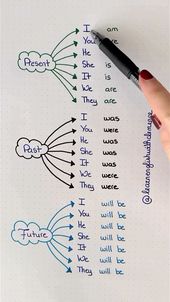 Present
I am
You are
He is
She is
It is
We are
They are
Past
I was
You were
He was
She was
It was
We were
They were
Future
I will be
You will be
He will be
She will be
It will be
We will be
They will be